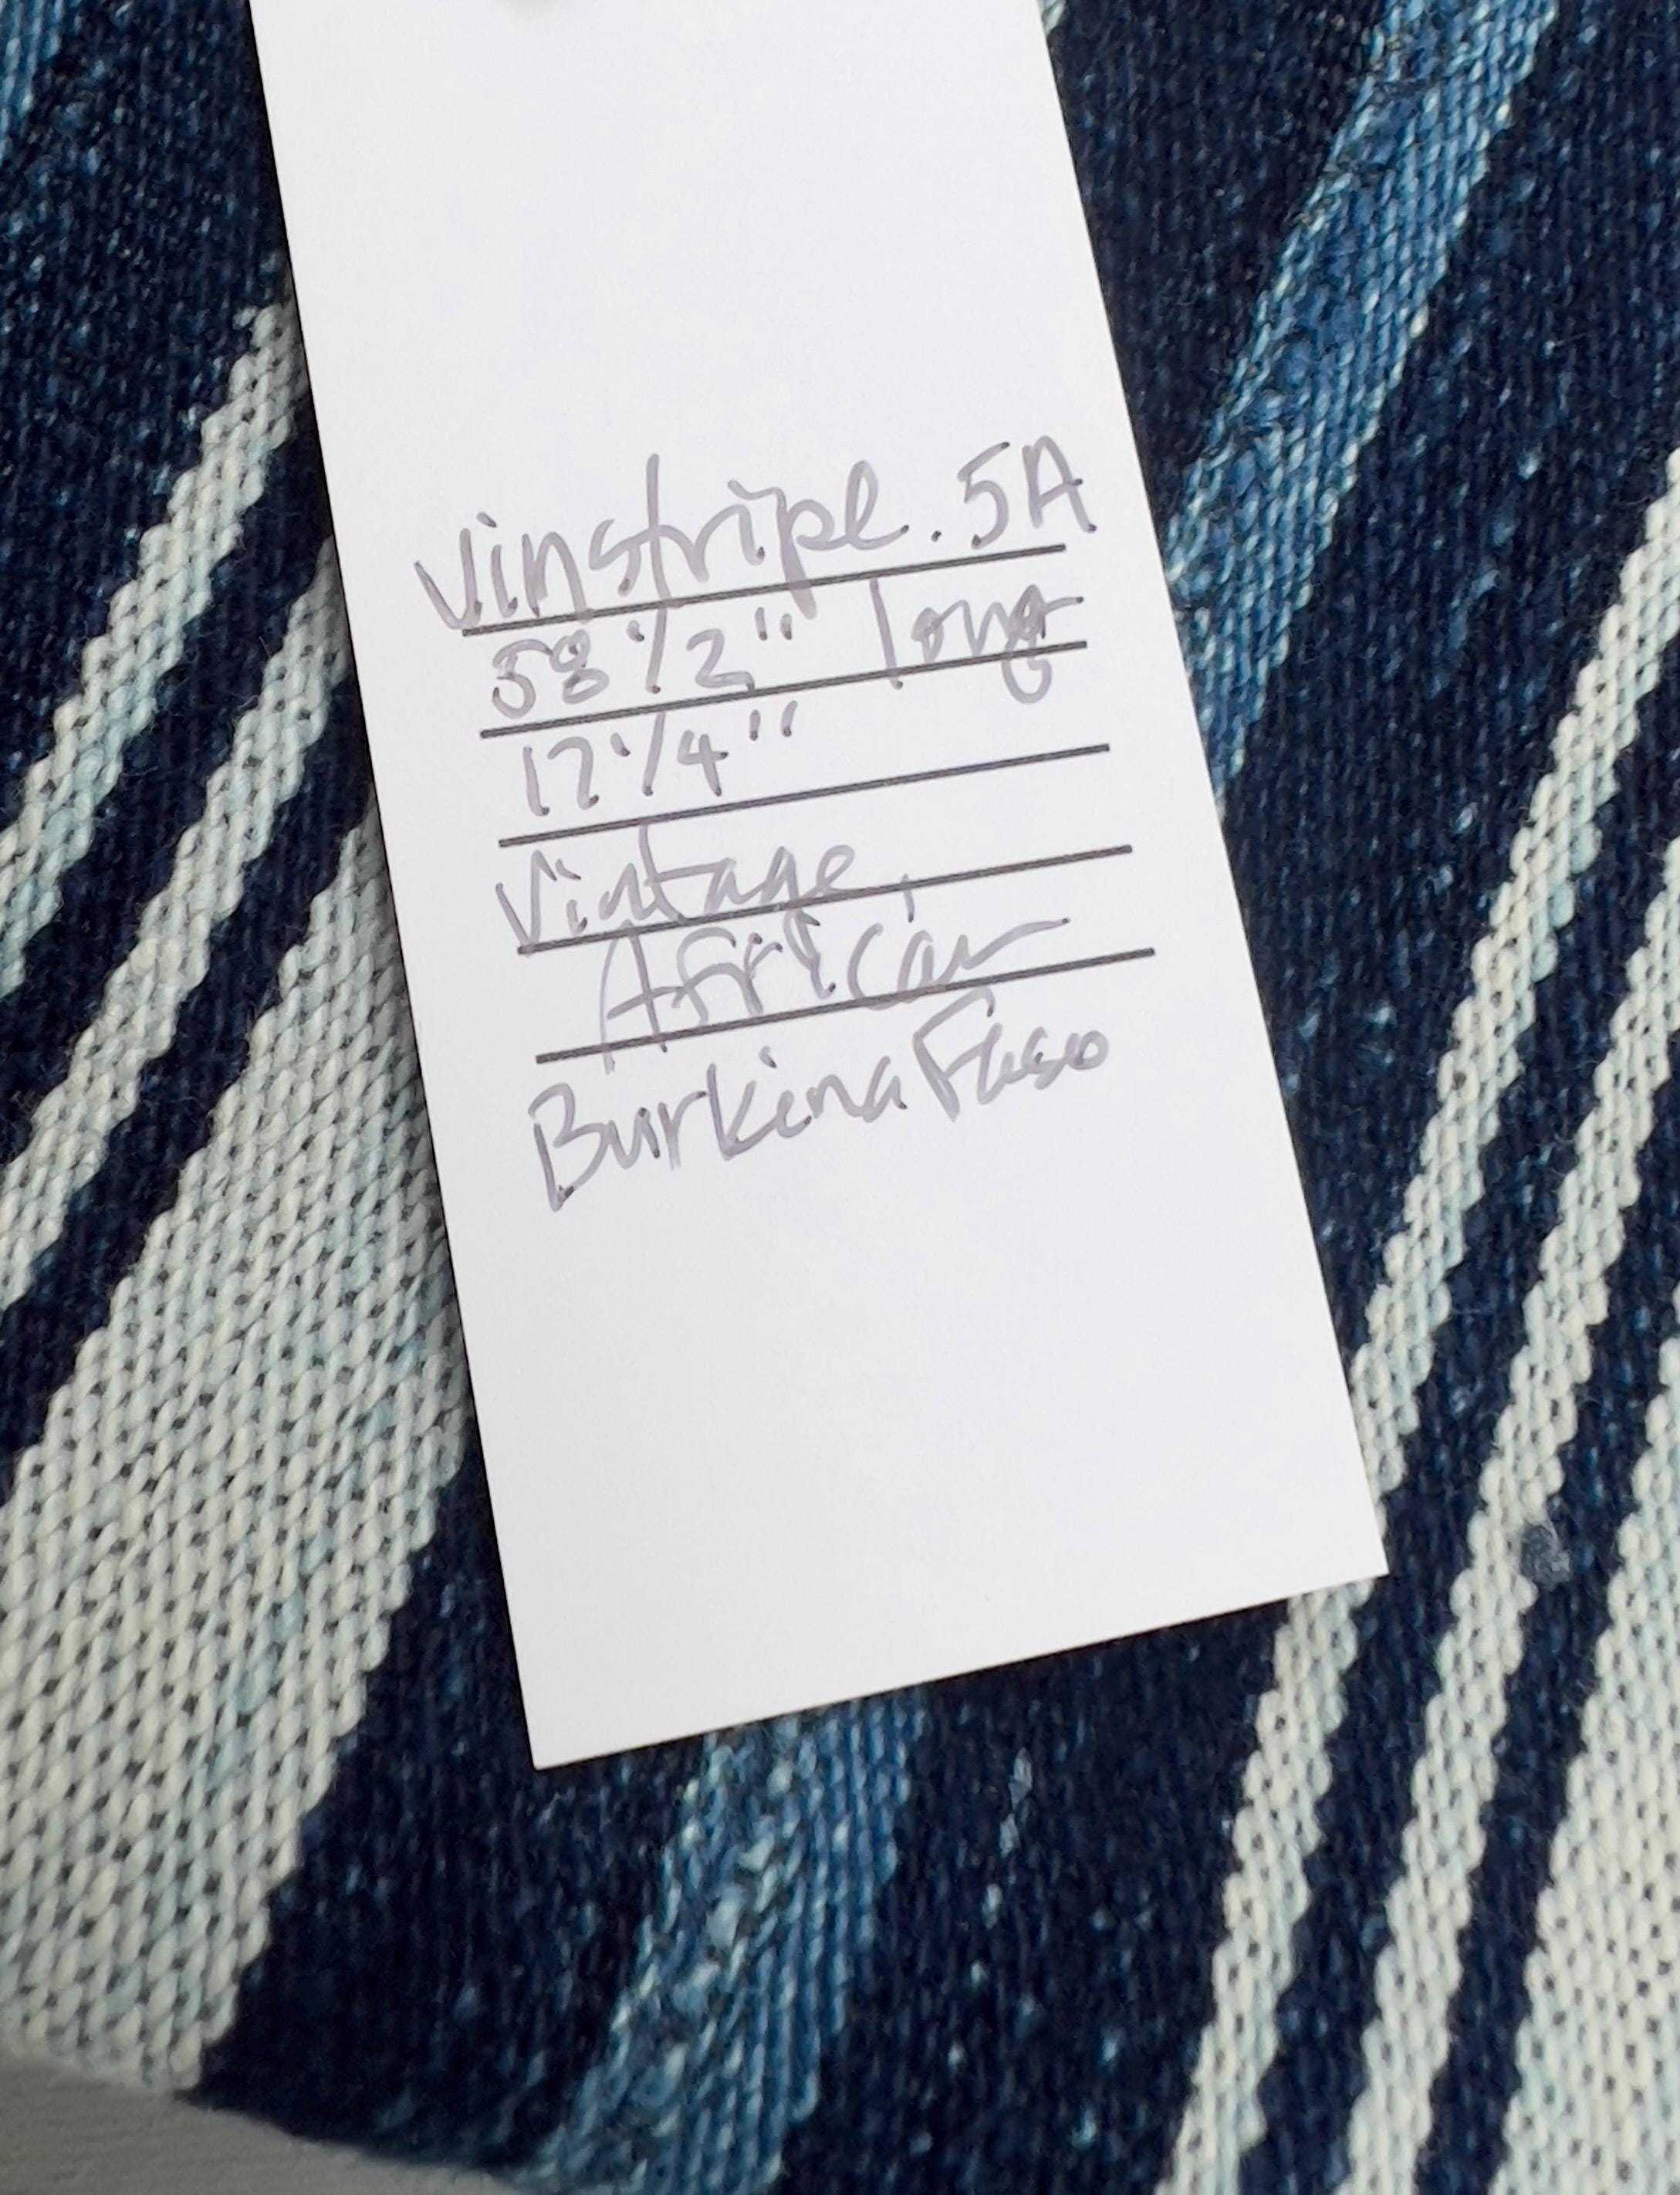 Vinstripe.5A
58 1/2" long
17 1/4"
Vintage,
African
Burkina Faso